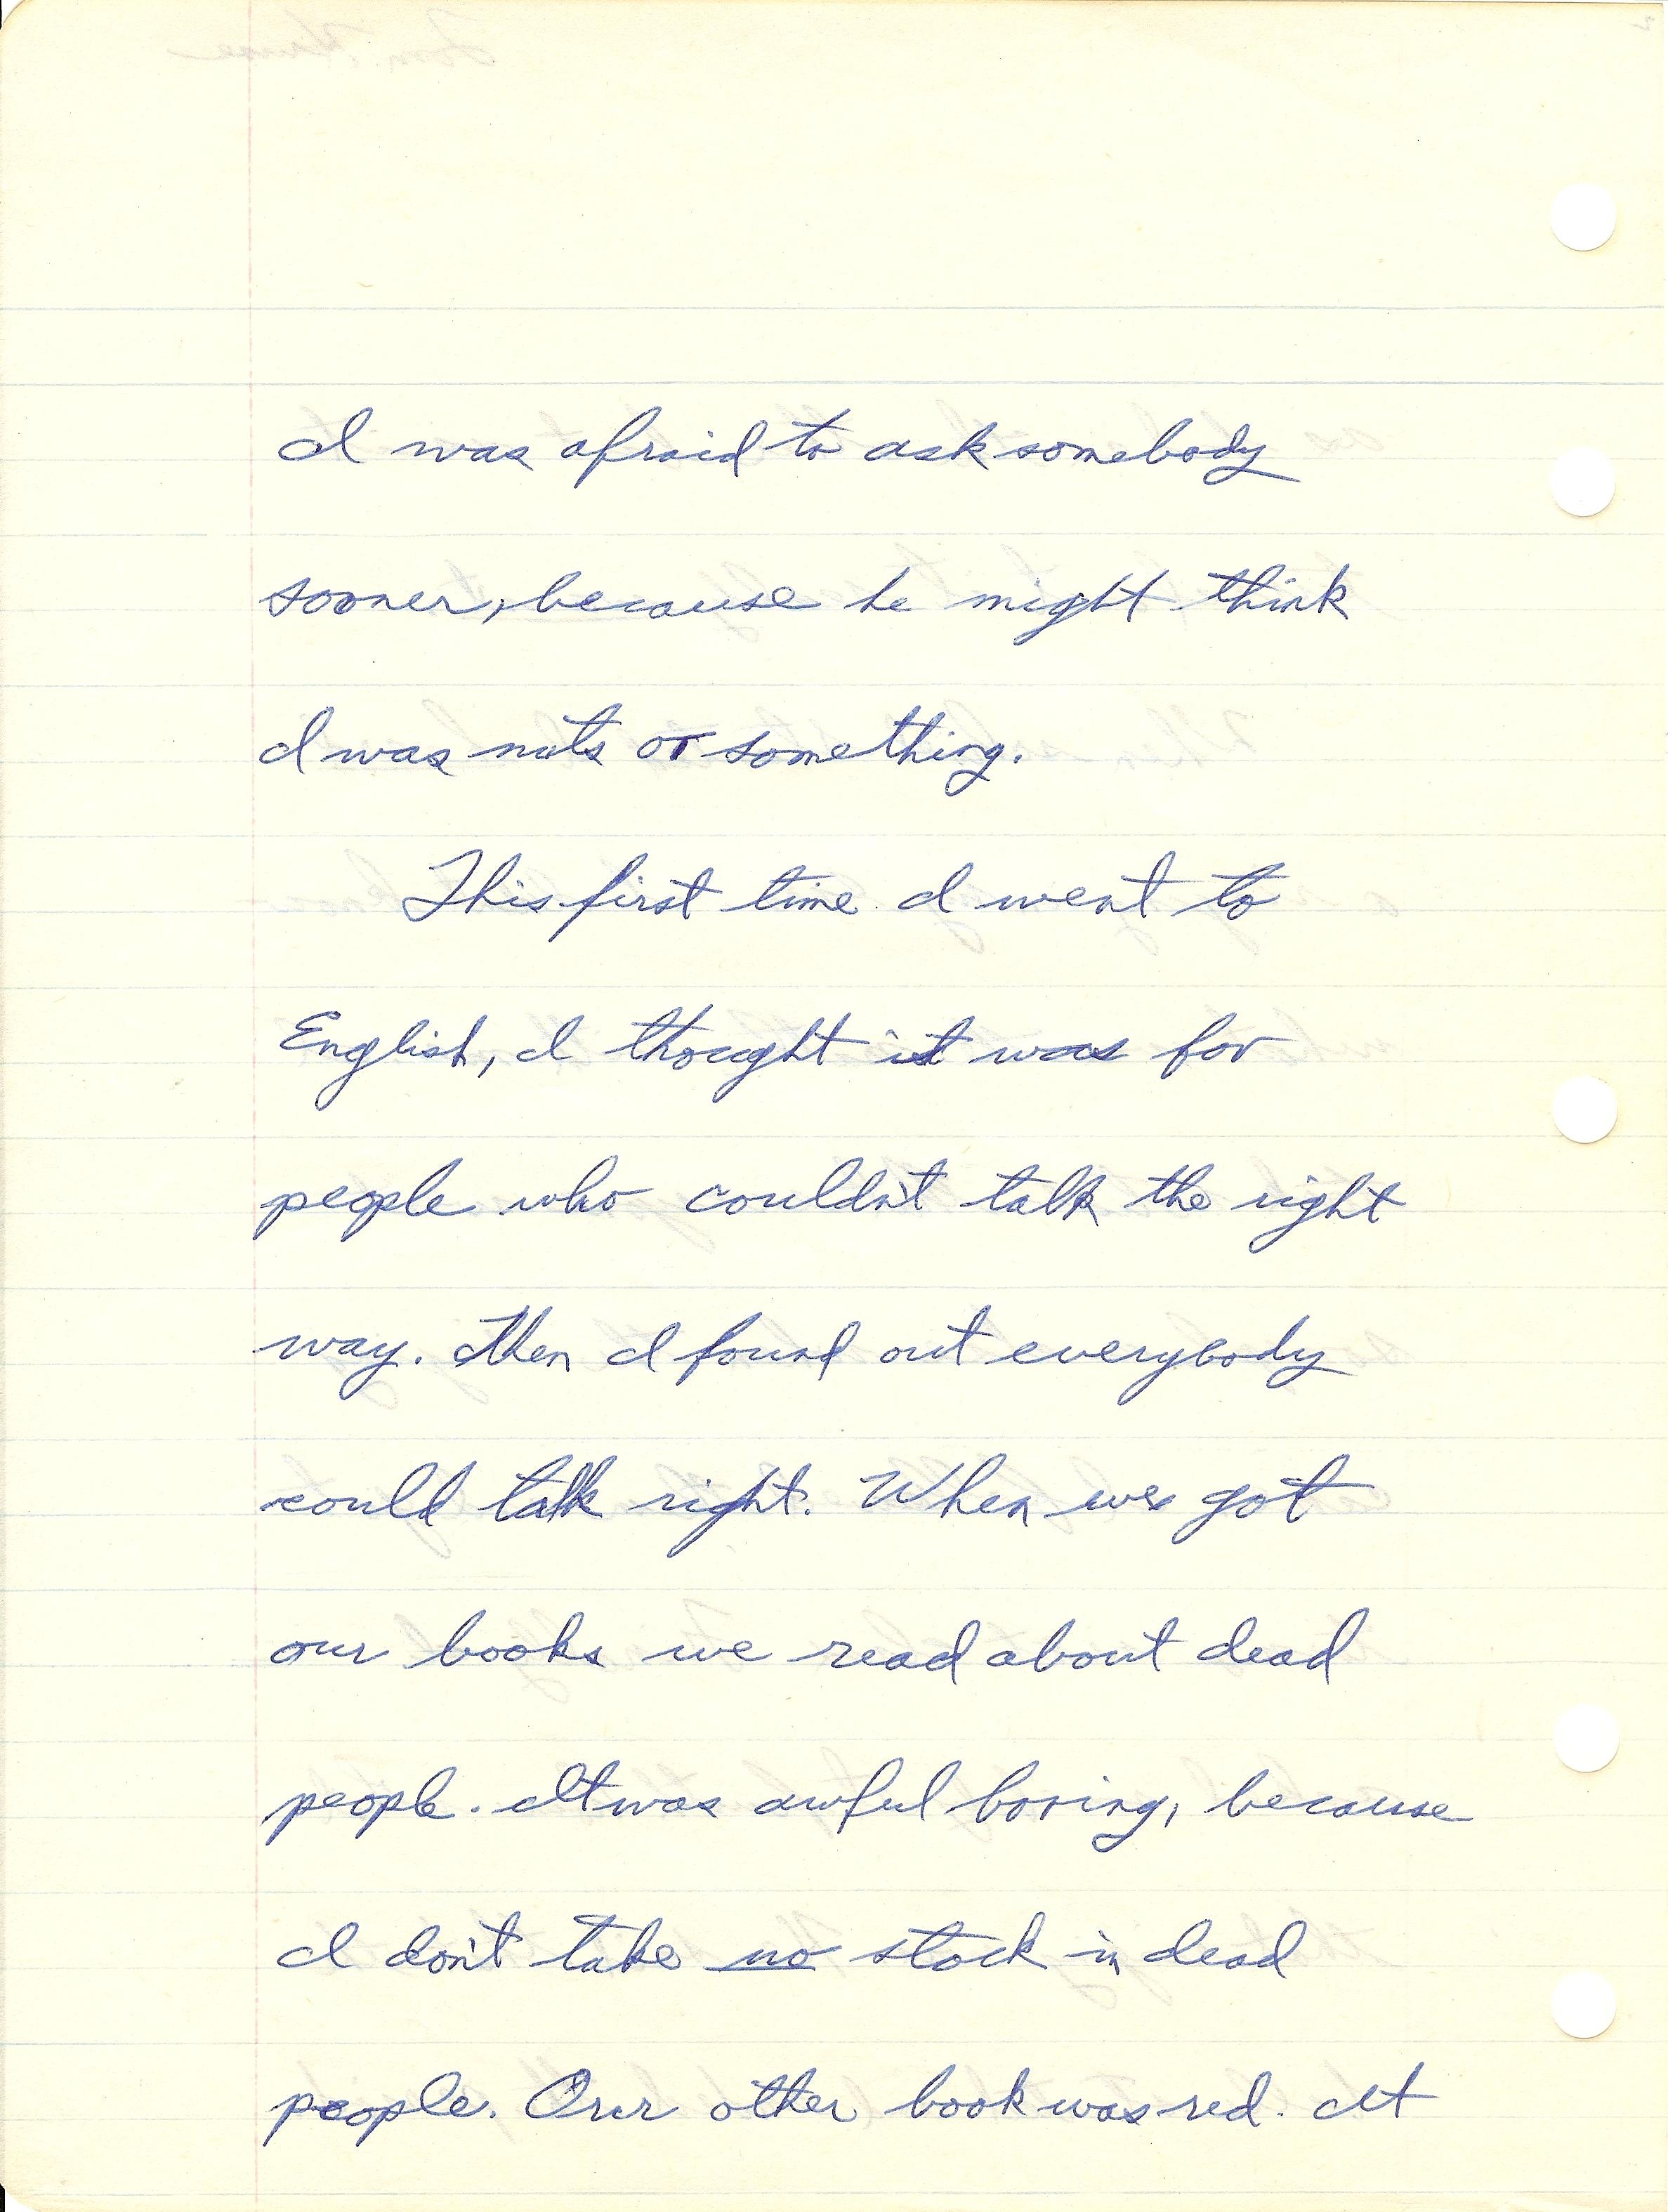 I was afraid to ask somebody
sooner, because he might think
I was nuts or something.
This first time I went to
English, I thought it was for
people who couldn't talk the right
way. Then I found out everybody
could talk right. When we got
our books we read about dead
people. It was awful boring, because
I don't take no stock in dead
people. Our other book was red. It